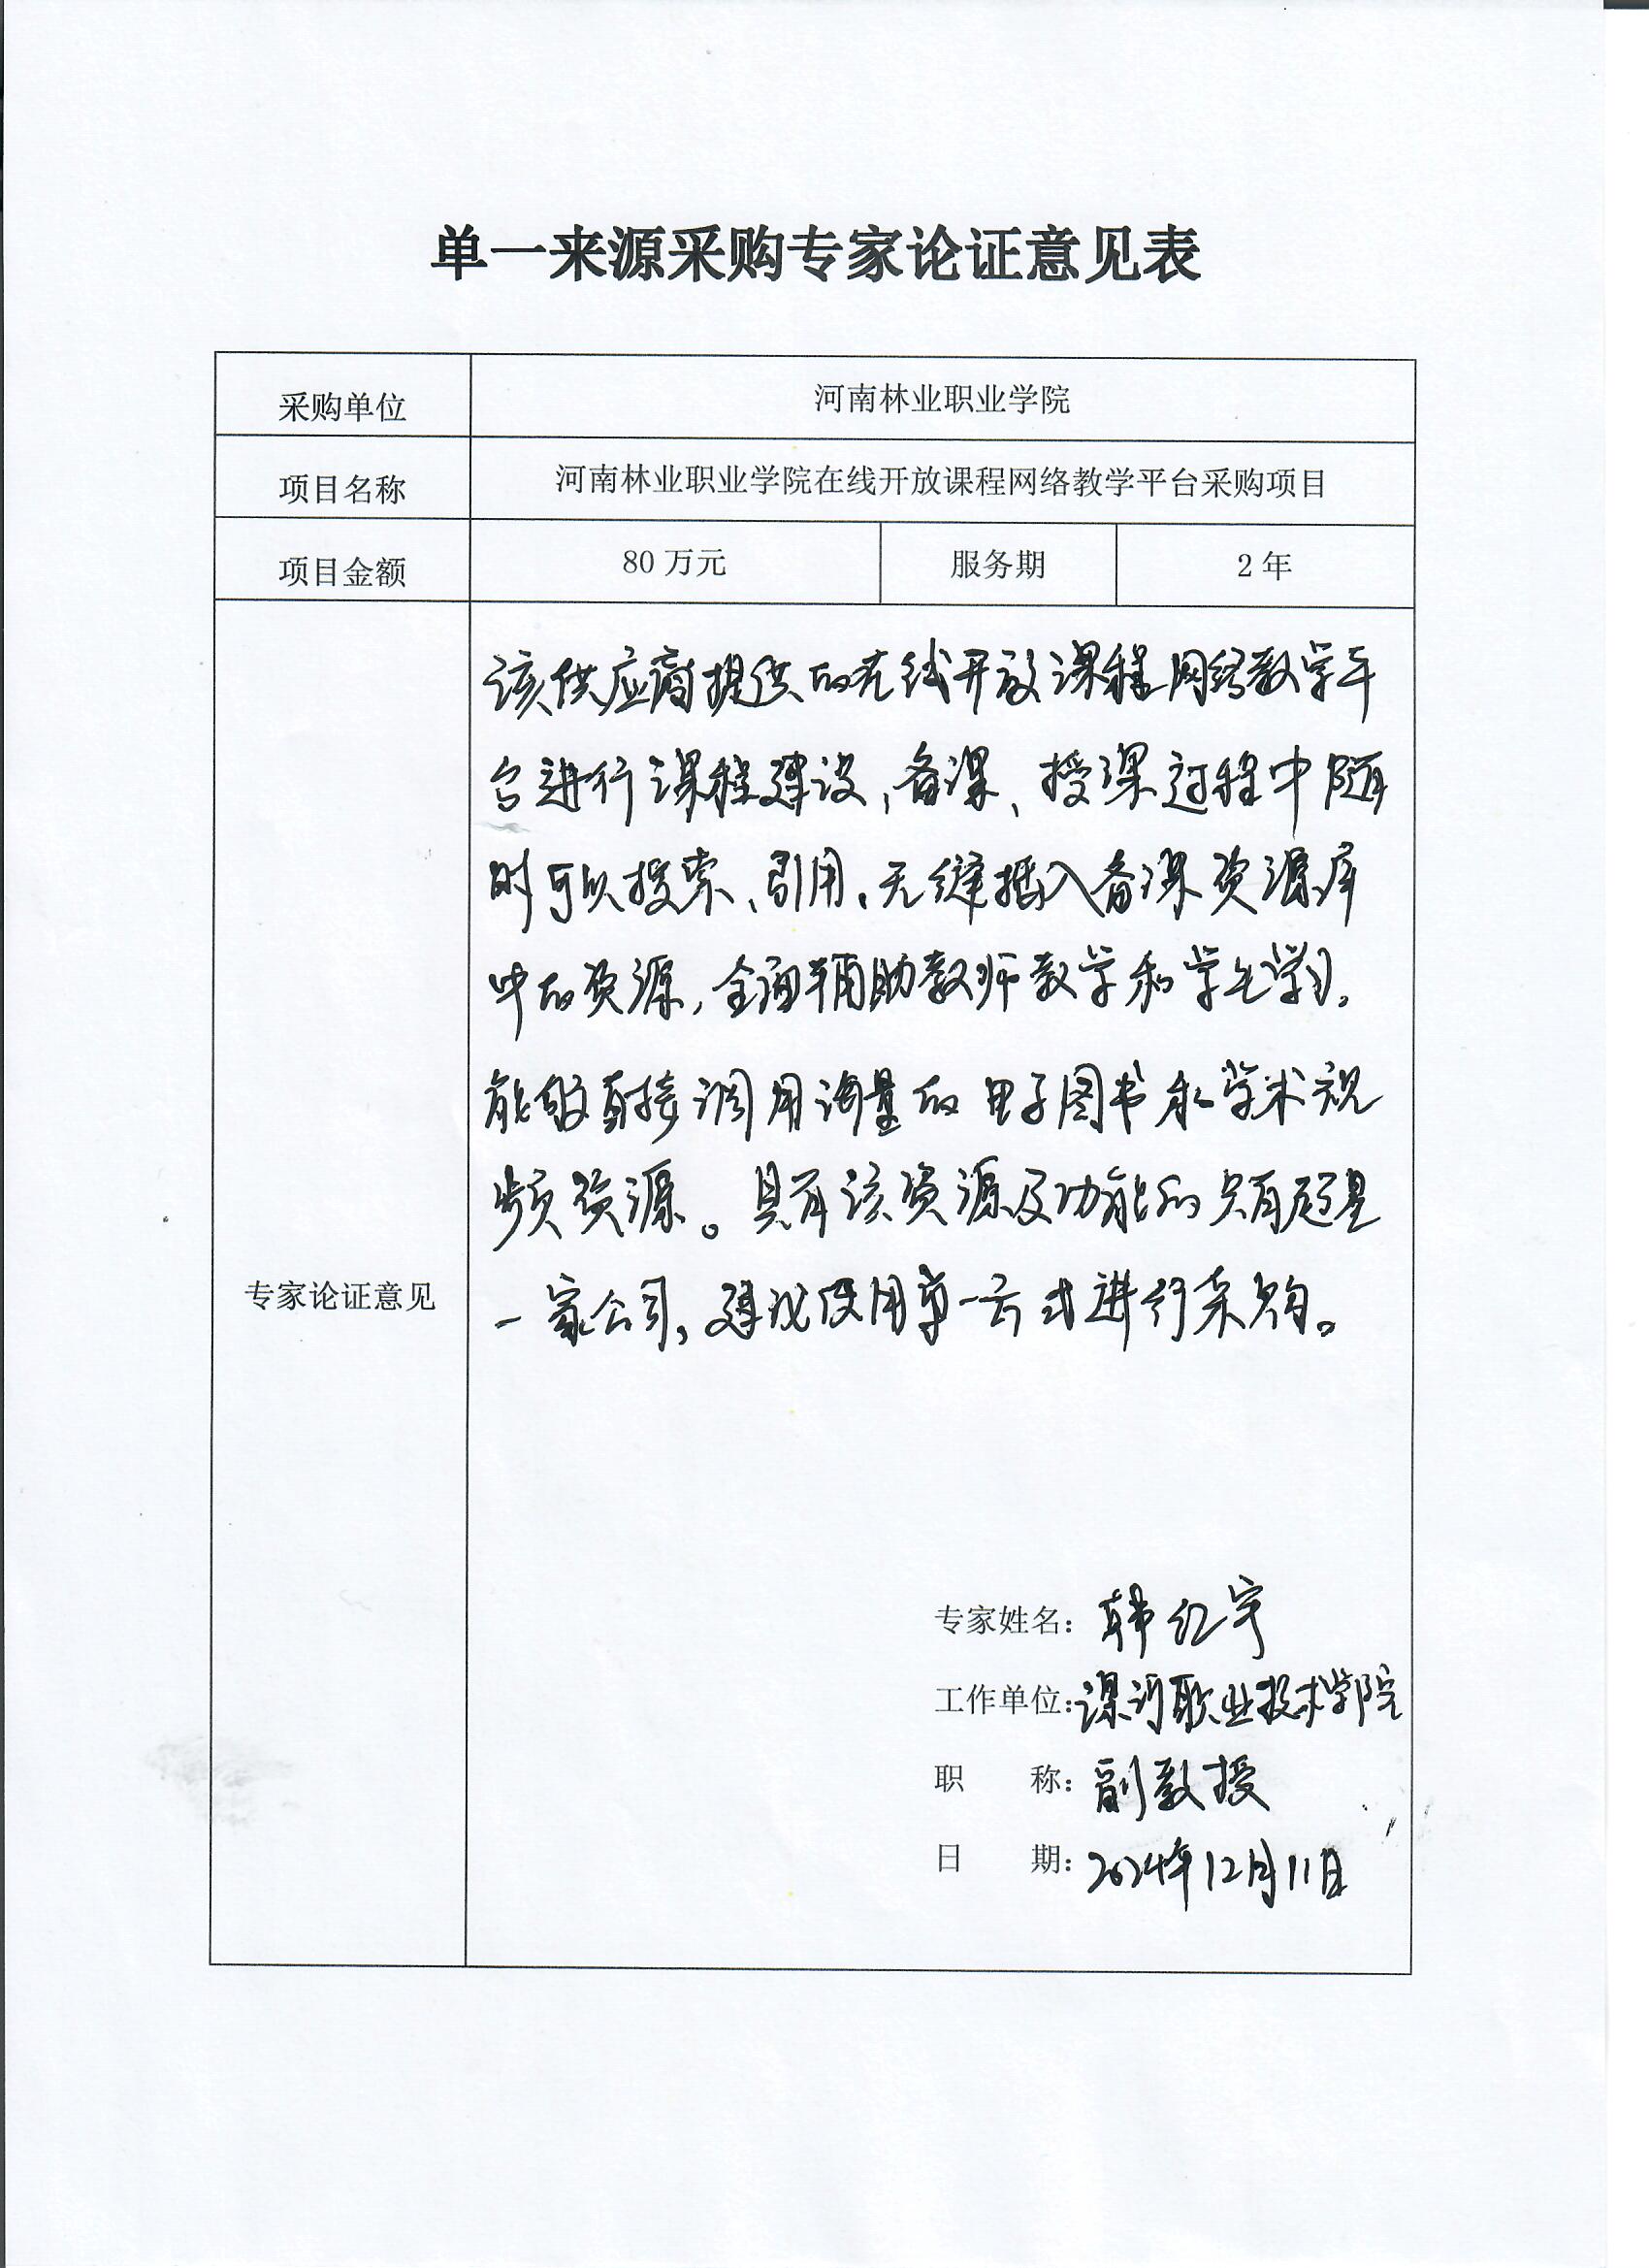 单一来源采购专家论证意见表
采购单位
河南林业职业学院
项目名称
河南林业职业学院在线开放课程网络教学平台采购项目
项目金额
80 万元
服务期
2 年
专家论证意见
该供应商提供的在线开放课程网络教学平
台进行课程建设,备课、授课过程中随
时可以搜索、引用、无缝插入备课资源库
中的资源,全面辅助教师教学和学生学习。
能够直接调用海量的电子图书和学术视
频资源。具有该资源及功能的只有超星
一家公司,建议使用单一方式进行采购。
专家姓名:韩红宇
工作单位:漯河职业技术学院
职 称:副教授
日 期:2024年12月11日